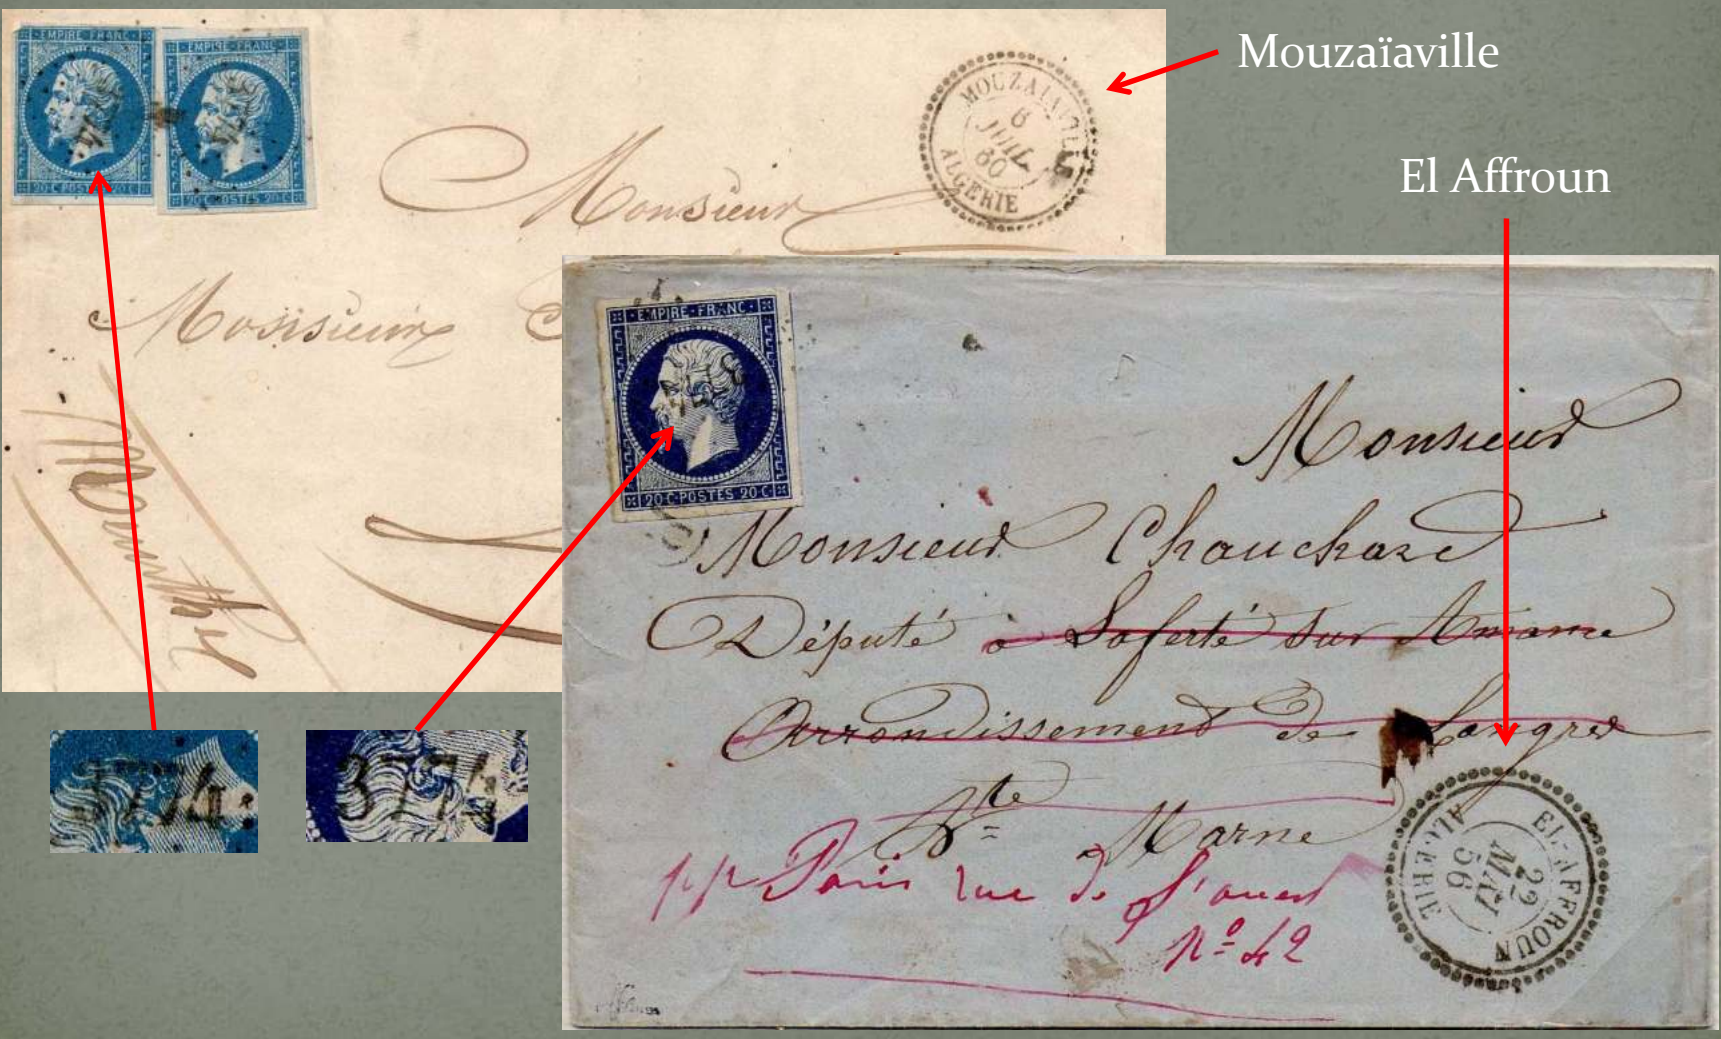 Mouzaïaville
El Affroun
EMPIRE FRANC
EMPIRE FRANC
20 C POSTES 20 C
20 C POSTES 20 C
MOUZAIAVILLE
6
JUIL
60
ALGERIE
Monsieur
Monsieur
EMPIRE FRANC
20 C POSTES 20 C
Monsieur
Monsieur Chauchard
Député à Laferté sur Amance
Arrondissement de Langres
Hte Marne
pp Paris rue de l'ouest
No 42
EL-AFFROUN
22
MAI
56
ALGERIE
3774
3774